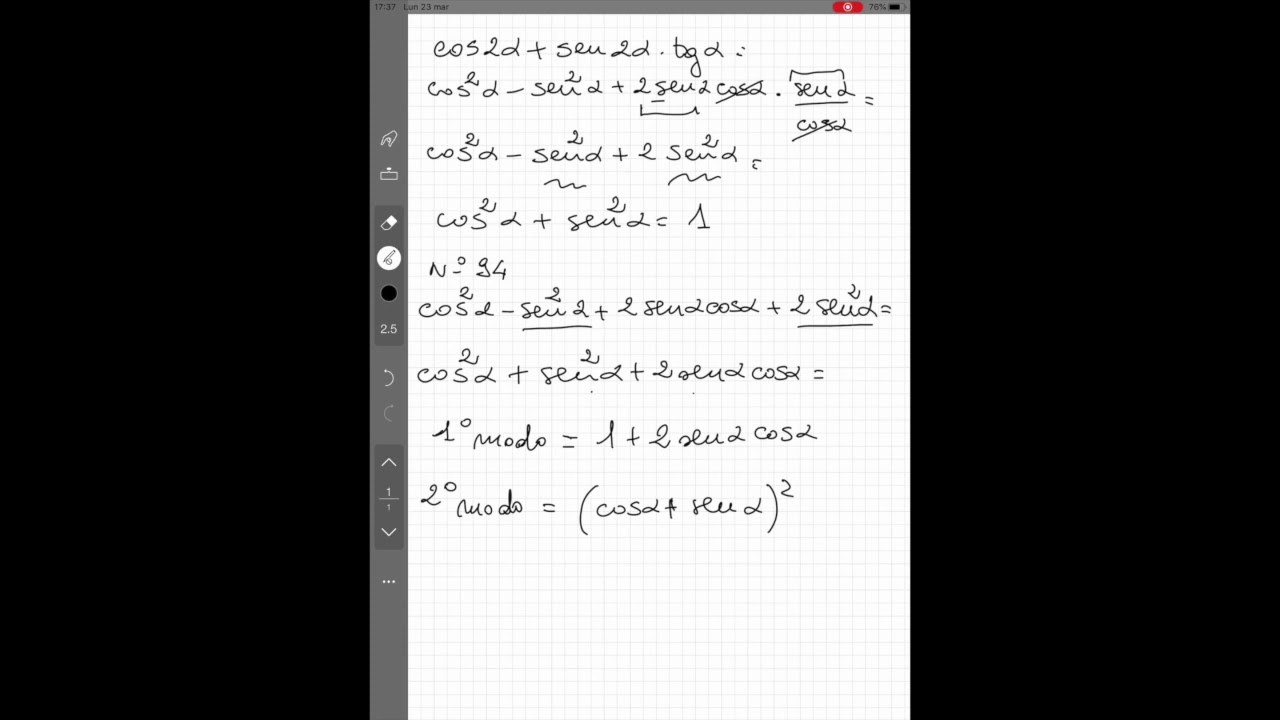 17:37 Lun 23 mar 76%
cos2α + sen2α · tgα =
cos²α − sen²α + 2 senα cosα · senα/cosα =
cos²α − sen²α + 2 sen²α =
cos²α + sen²α = 1
N° 94
cos²α − sen²α + 2 senα cosα + 2 sen²α =
cos²α + sen²α + 2 senα cosα =
1° modo = 1 + 2 senα cosα
2° modo = (cosα + senα)²
2.5
1
1